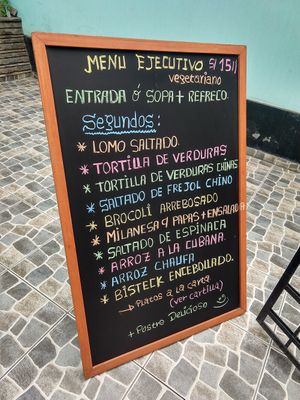 MENU EJECUTIVO S/ 15||
vegetariano
ENTRADA ó SOPA + REFRECO.
Segundos:
* LOMO SALTADO.
* TORTILLA DE VERDURAS
* TORTILLA DE VERDURAS CHINAS
* SALTADO DE FREJOL CHINO
* BROCOLI ARREBOSADO
* MILANESA 4 PAPAS + ENSALADA
* SALTADO DE ESPINACA
* ARROZ A LA CUBANA.
* ARROZ CHAUFA
* BISTECK ENCEBOLLADO.
→ Platos a la carta
(ver cartilla)
+ Postre Delicioso